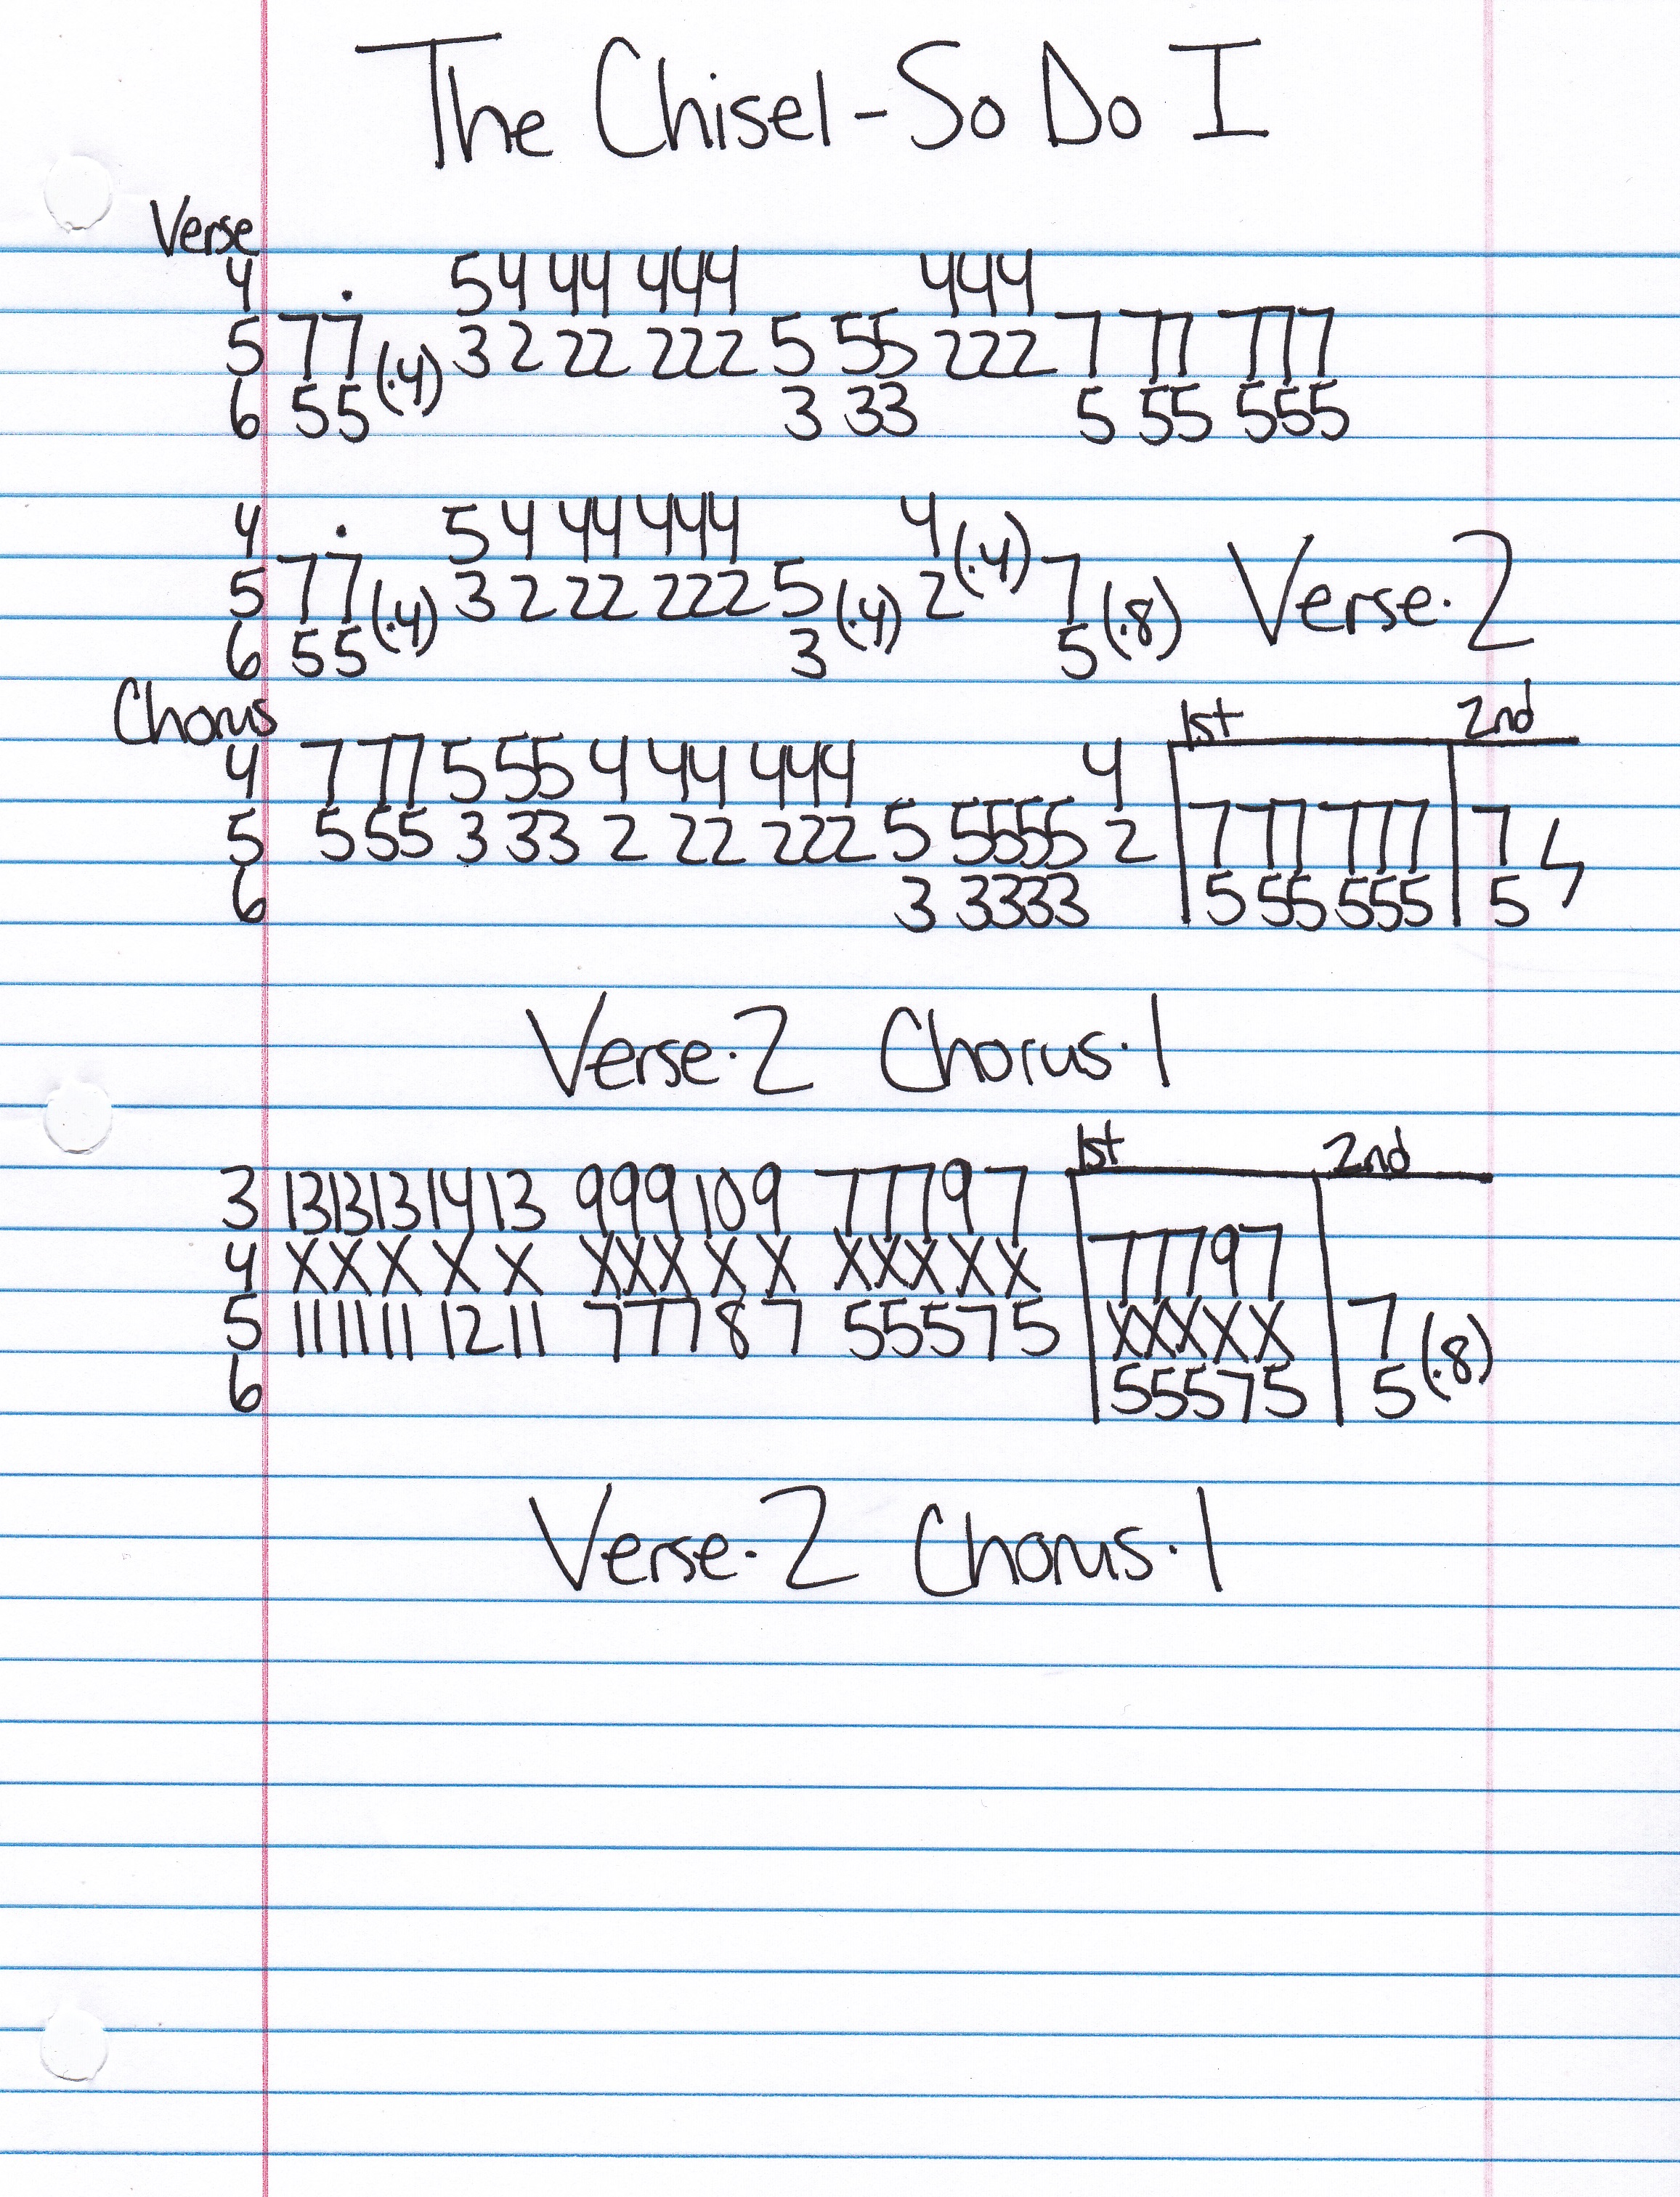 The Chisel - So Do I
Verse
4 . 54 44 444 444
5 77 (.4) 32 22 222 5 55 222 7 77 777
6 55 3 33 5 55 555
4 . 54 44 444 4 (.4)
5 77 (.4) 32 22 222 5 (.4) 2 7 (.8) Verse·2
6 55 3 5
Chorus 1st 2nd
4 7 77 5 55 4 44 444 4
5 5 55 3 33 2 22 222 5 5555 2 7 77 777 7
6 3 3333 5 55 555 5
Verse·2 Chorus·1
1st 2nd
3 13 13 13 14 13 9 9 9 10 9 7 7 7 9 7
4 X X X X X X X X X X X X X X X 7 7 7 9 7
5 11 11 11 12 11 7 7 7 8 7 5 5 5 7 5 X X X X X 7 (.8)
6 5 5 5 7 5 5
Verse·2 Chorus·1